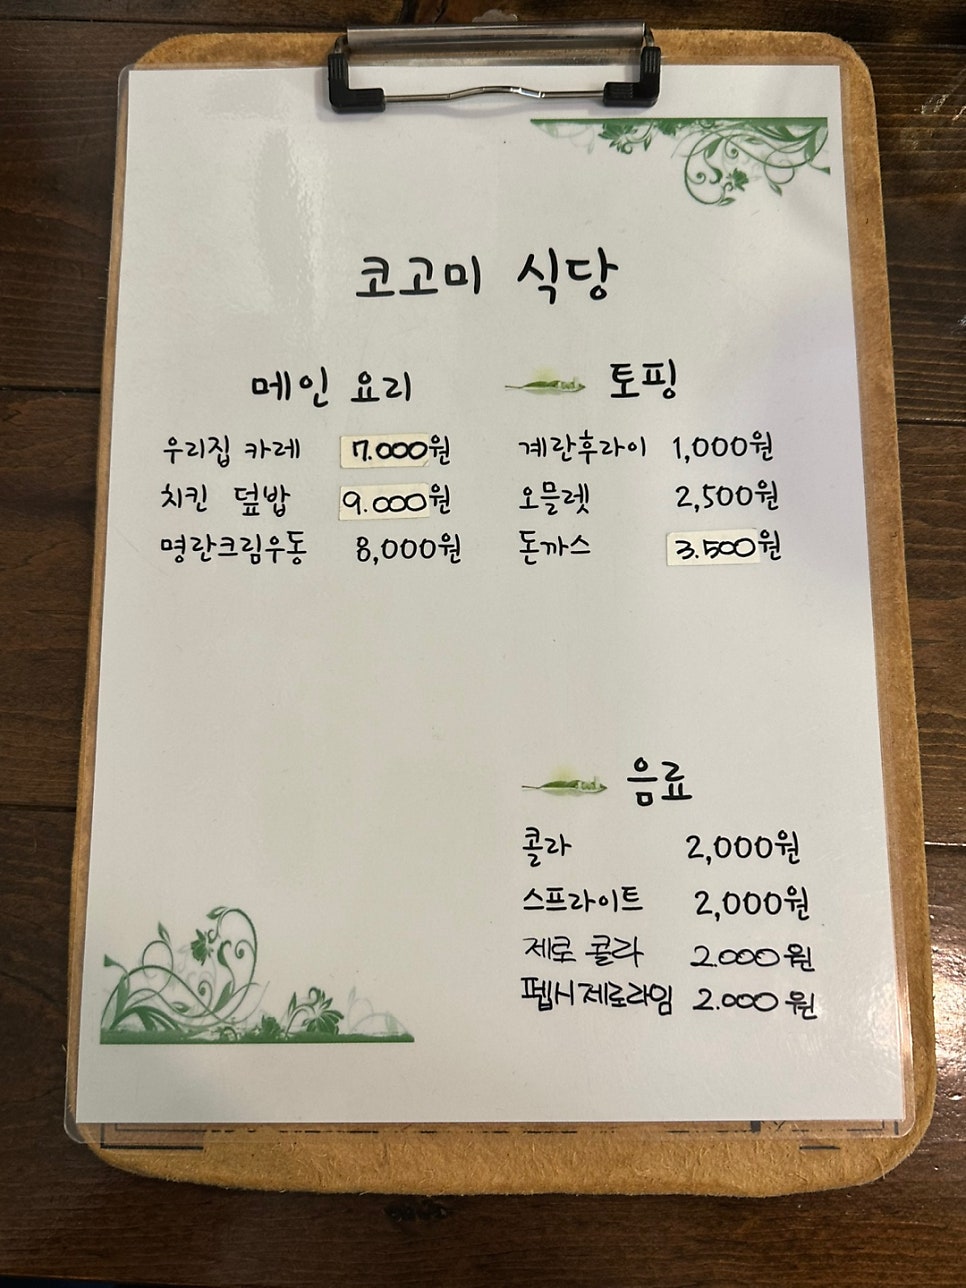 코고미 식당
메인 요리
우리집 카레 7.000원
치킨 덮밥 9.000원
명란크림우동 8,000원
토핑
계란후라이 1,000원
오믈렛 2,500원
돈까스 3.500원
음료
콜라 2,000원
스프라이트 2,000원
제로 콜라 2.000원
펩시제로라임 2.000원